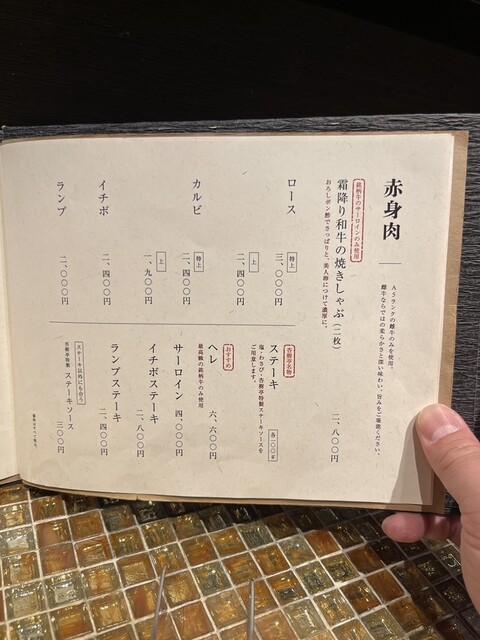 赤身肉
A5ランクの雌牛のみを使用。
雌牛ならではの柔らかさと深い味わい、旨みをご堪能ください。
銘柄牛のサーロインのみ使用
霜降り和牛の焼きしゃぶ(二枚)
二、八〇〇円
おろしポン酢でさっぱりと、美人卵につけて濃厚に。
ロース
特上
三、〇〇〇円
上
二、四〇〇円
カルビ
特上
二、四〇〇円
上
一、九〇〇円
イチボ
二、四〇〇円
ランプ
二、〇〇〇円
杏樹亭名物
ステーキ
各一〇〇g
塩・わさび・杏樹亭特製ステーキソースを
ご用意します。
おすすめ
ヘレ
六、〇〇〇円
最高級の銘柄牛のみ使用
サーロイン
四、〇〇〇円
イチボステーキ
二、八〇〇円
ランプステーキ
二、四〇〇円
ステーキ以外にも合う
杏樹亭特製
ステーキソース
三〇〇円